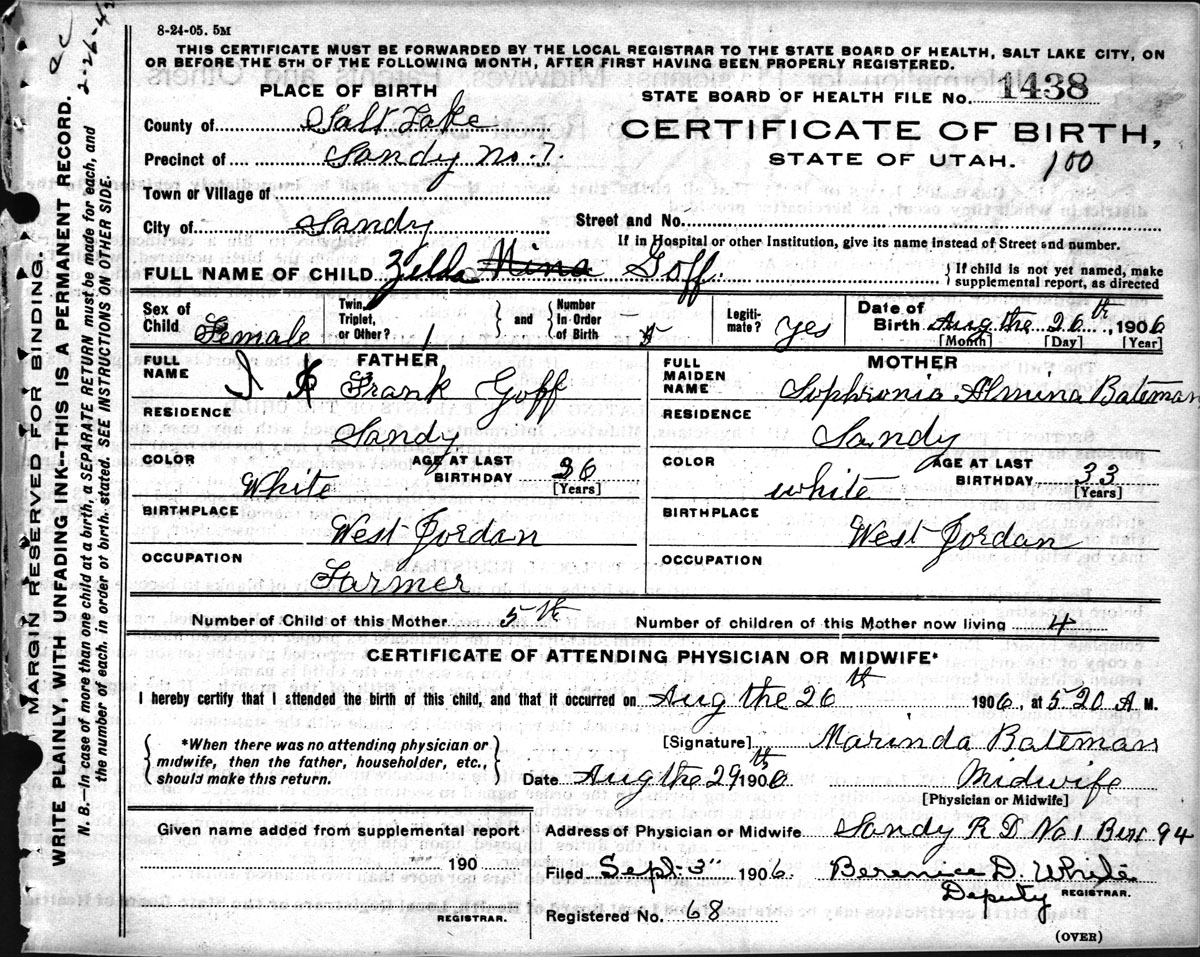 8-24-05. 5M
THIS CERTIFICATE MUST BE FORWARDED BY THE LOCAL REGISTRAR TO THE STATE BOARD OF HEALTH, SALT LAKE CITY, ON
OR BEFORE THE 5TH OF THE FOLLOWING MONTH, AFTER FIRST HAVING BEEN PROPERLY REGISTERED.
PLACE OF BIRTH
STATE BOARD OF HEALTH FILE No. 1438
County of Salt Lake
CERTIFICATE OF BIRTH,
Precinct of Sandy No. 7.
STATE OF UTAH. 100
Town or Village of
City of Sandy
Street and No.
If in Hospital or other Institution, give its name instead of Street and number.
FULL NAME OF CHILD Zelda Nina Goff.
If child is not yet named, make
supplemental report, as directed
Sex of Child Female
Twin, Triplet, or Other? 1
and
Number In Order of Birth 5
Legitimate? Yes
Date of Birth Aug the 26th, 1906
[Month] [Day] [Year]
FATHER
FULL NAME Frank Goff
RESIDENCE
Sandy
COLOR White
AGE AT LAST BIRTHDAY 36
[Years]
BIRTHPLACE
West Jordan
OCCUPATION
Farmer
MOTHER
FULL MAIDEN NAME Sophronia Almina Bateman
RESIDENCE
Sandy
COLOR white
AGE AT LAST BIRTHDAY 33
[Years]
BIRTHPLACE
West Jordan
OCCUPATION
Number of Child of this Mother 5th
Number of children of this Mother now living 4
CERTIFICATE OF ATTENDING PHYSICIAN OR MIDWIFE*
I hereby certify that I attended the birth of this child, and that it occurred on Aug the 26th 1906, at 5 20 A M.
*When there was no attending physician or
midwife, then the father, householder, etc.,
should make this return.
[Signature] Marinda Bateman
Date Aug the 29th 1906
Midwife
[Physician or Midwife]
Given name added from supplemental report
190
REGISTRAR.
Address of Physician or Midwife Sandy R D No 1 Box 94
Filed Sept 3" 1906. Berenice D. White
Deputy REGISTRAR.
Registered No. 68
(OVER)
MARGIN RESERVED FOR BINDING.
WRITE PLAINLY, WITH UNFADING INK--THIS IS A PERMANENT RECORD.
N. B.--In case of more than one child at a birth, a SEPARATE RETURN must be made for each, and
the number of each, in order of birth, stated. SEE INSTRUCTIONS ON OTHER SIDE.
2-26-42